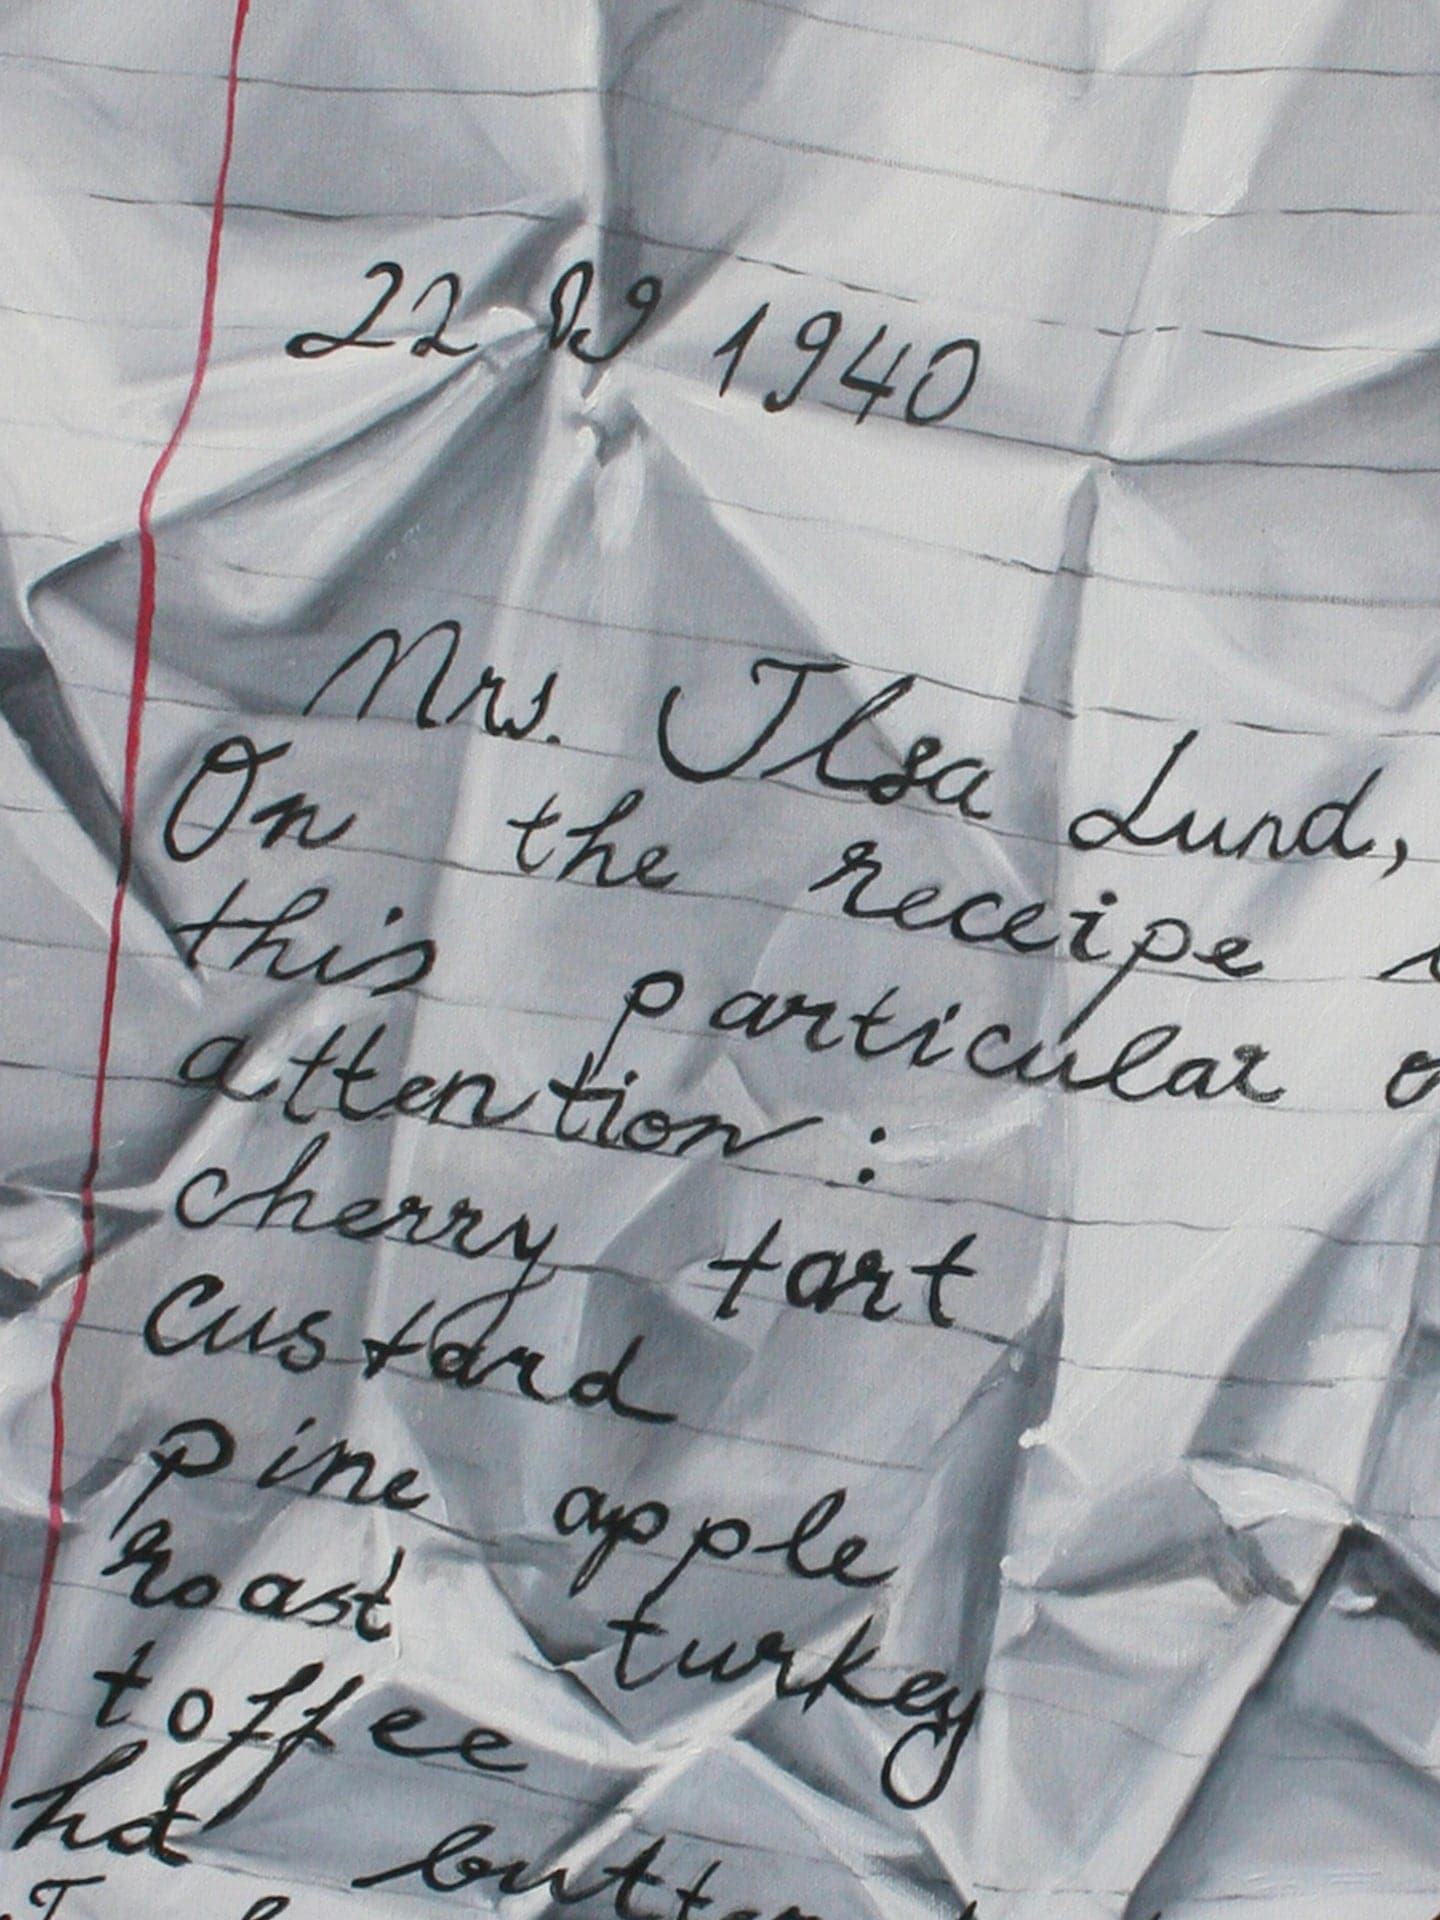 22 09 1940
Mrs. Ilsa Lund,
On the receipe
this particular
attention:
cherry tart
custard
pine apple
roast turkey
toffee
hot